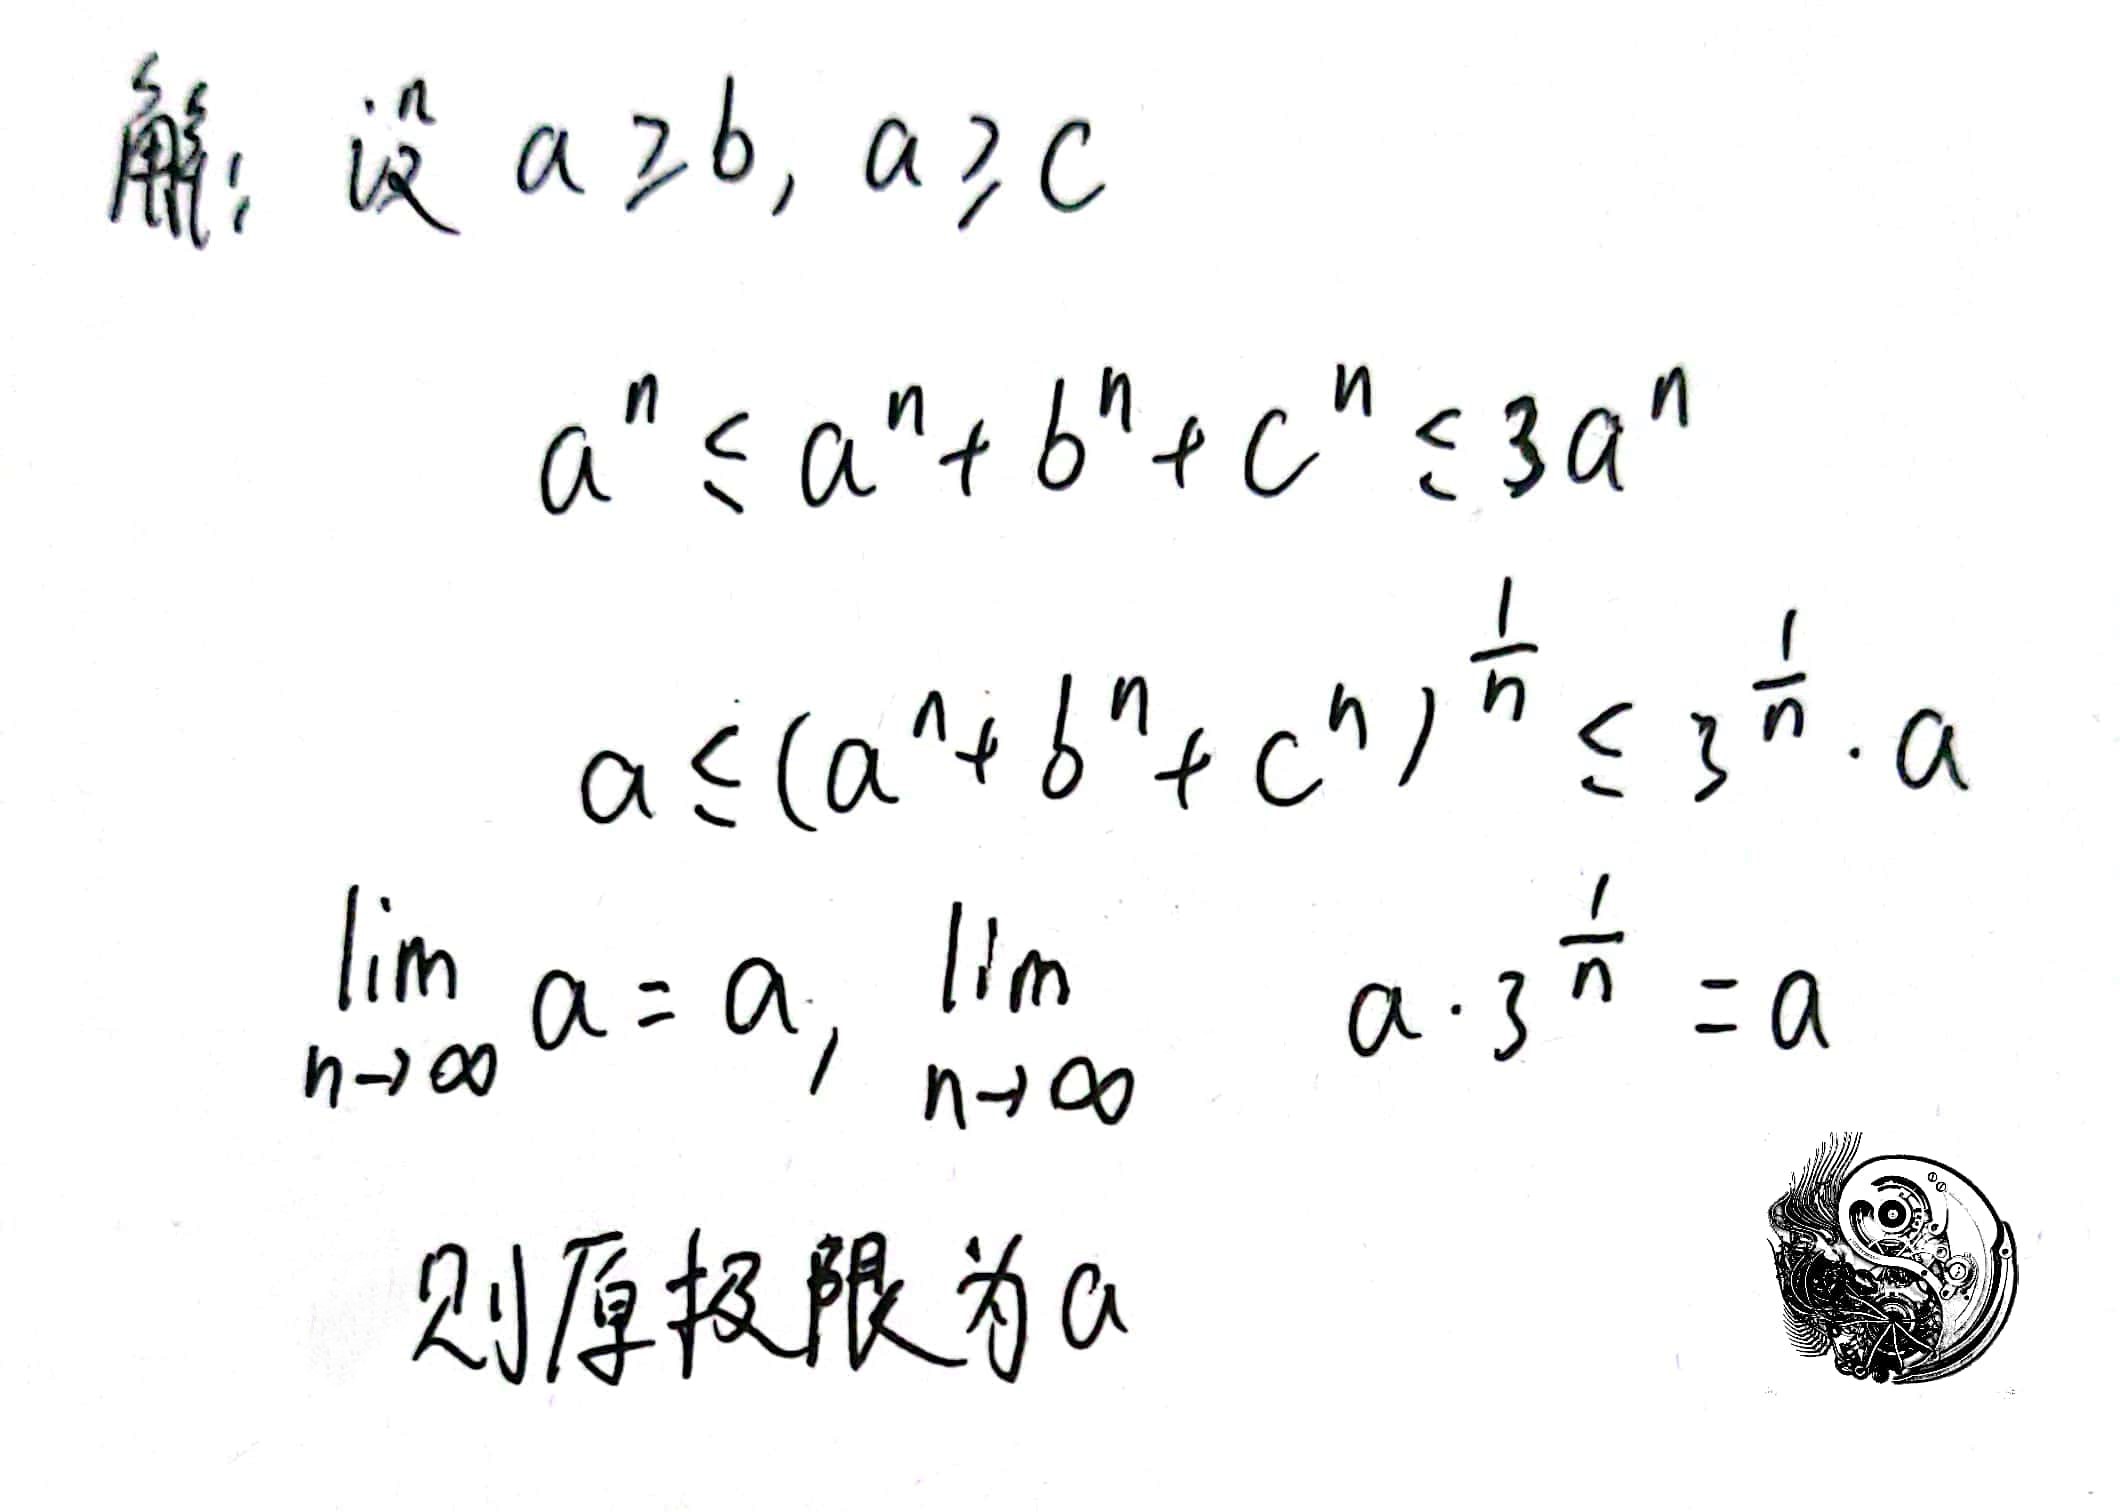 解: 设 a ≥ b, a ≥ c
aⁿ ≤ aⁿ + bⁿ + cⁿ ≤ 3aⁿ
a ≤ (aⁿ + bⁿ + cⁿ)^(1/n) ≤ 3^(1/n) · a
lim n→∞ a = a, lim n→∞ a · 3^(1/n) = a
则原极限为a